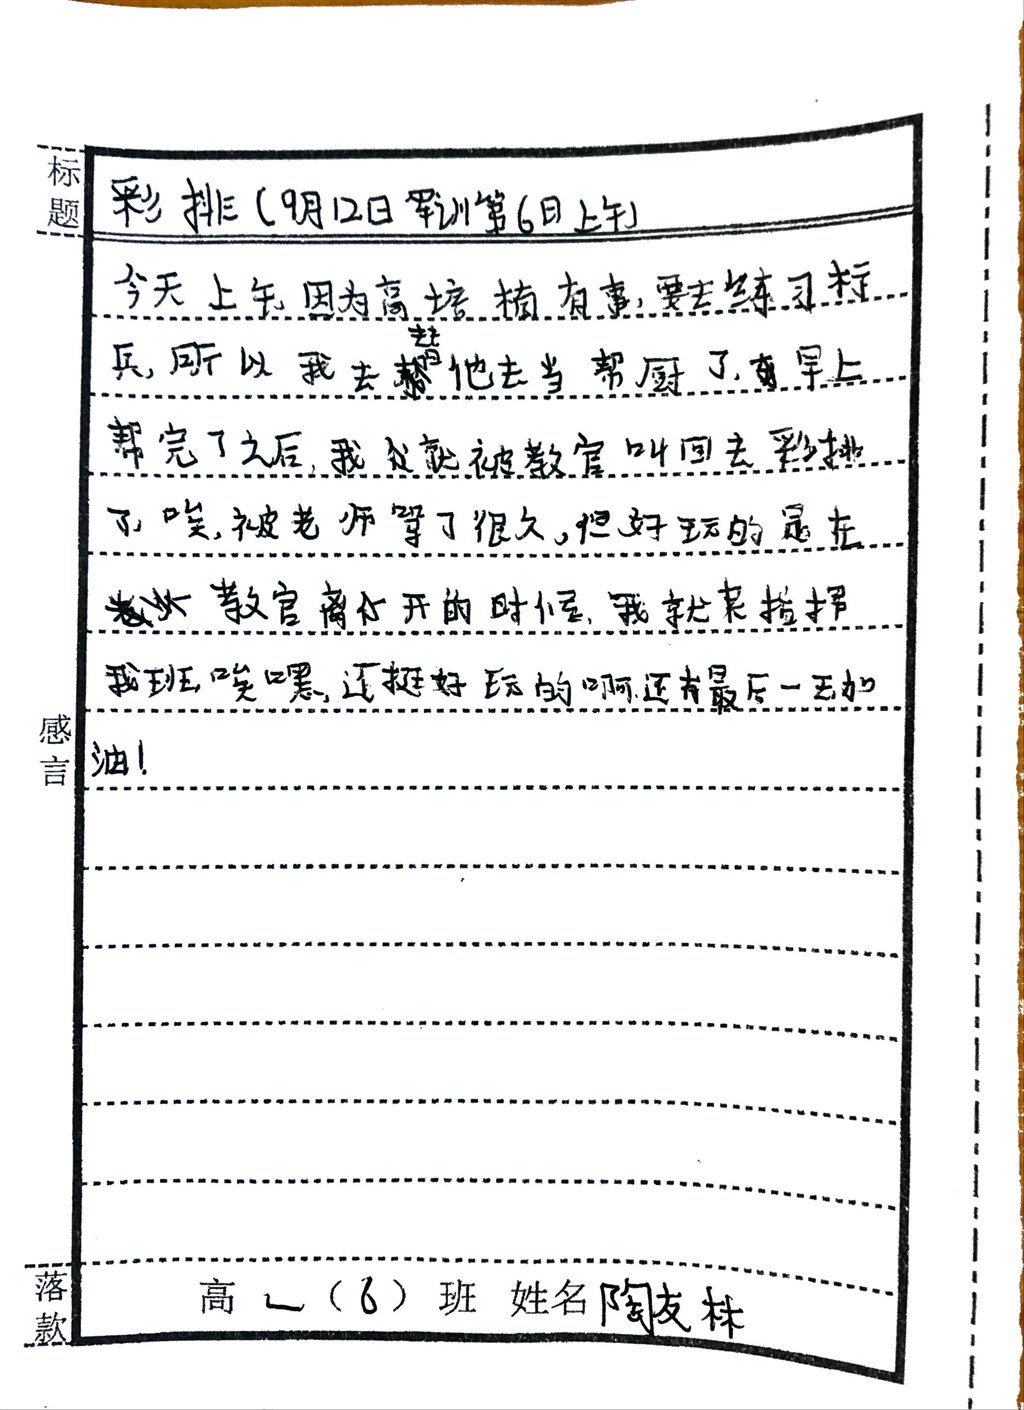 标题
彩排(9月12日军训第6日上午)
今天上午,因为高培楠有事,要去练习标
兵,所以我去替他去当帮厨了,早上
帮完了之后,我就被教官叫回去彩排
了,唉,被老师等了很久,但好玩的是在
教官离开的时候,我就来指挥
我班,唉嘿,还挺好玩的啊.还有最后一天加
油!
感言
落款
高二(6)班 姓名陶友林